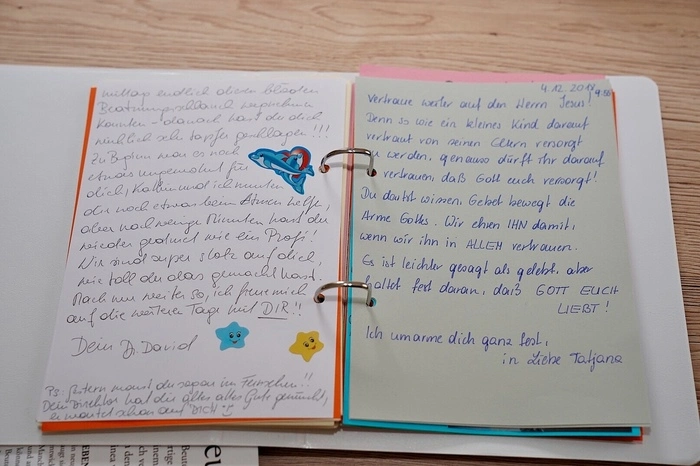 mittags endlich diesen blöden
Beatmungsschlauch
konnten - danach hast du dich
wirklich sehr tapfer geschlagen!!!
Zu Beginn war es noch
etwas ungewohnt für
dich, und ich mussten
dir noch etwas beim Atmen helfen,
aber nach wenigen Minuten hast du
wieder geatmet wie ein Profi!
Wir sind super stolz auf dich,
wie toll du das gemacht hast.
Mach nur weiter so, ich freue mich
auf die weiteren Tage mit DIR!!
Dein David
Ps: Gestern warst du sogar im Fernsehen!!
Dein Direktor hat dir alles alles Gute gewünscht,
er wartet schon auf DICH
4.12.2018
Vertraue weiter auf den Herrn Jesus!
Denn so wie ein kleines Kind darauf
vertraut von seinen Eltern versorgt
zu werden, genauso dürft ihr darauf
vertrauen, daß Gott euch versorgt!
Du darfst wissen, Gebet bewegt die
Arme Gottes. Wir ehren IHN damit,
wenn wir ihn in ALLEM vertrauen.
Es ist leichter gesagt als gelebt, aber
haltet fest daran, daß GOTT EUCH
LIEBT!
Ich umarme dich ganz fest,
in Liebe Tatjana